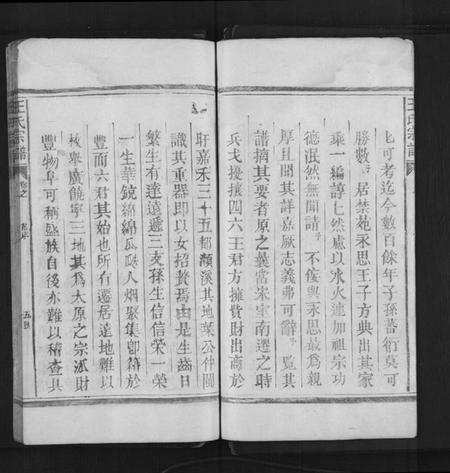 匕可考迄今數百餘年子孫蕃衍莫可
勝數 居禁苑永思王子方典出其家
乘一編諄匕然慮以水火連加祖宗功
德泯然無聞請 不佞與永思最為親
厚且聞其詳嘉厥志義弗可辭 覧其
譜摘其要者原之曩當宋室南遷之時
兵戈擾攘四六王君方擁貲財出商於
盱嘉禾三十五都瀕溪其地葉公仲圓
識其重器即以女招贅焉由是生齒日
繁生有達遠遜三支孫生信信榮一榮
一生華鏡綿綿瓜瓞人烟聚集卽籍於
豐而六君其始也所有遷居遠地難以
枚舉廣饒寧三地其為太原之宗派財
豐物阜可稱盛族自後亦難以稽查具
王氏宗譜
卷之
五
王氏宗譜